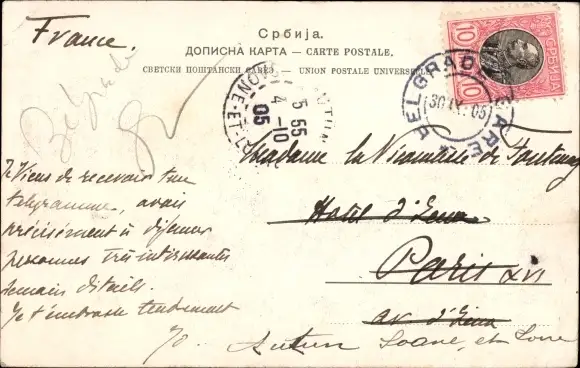 France.
Србија.
ДОПИСНА КАРТА – CARTE POSTALE.
СВЕТСКИ ПОШТАНСКИ САВЕЗ. – UNION POSTALE UNIVERSELLE
10 СРБИЈА 10
BELGRADE GARE
30 IX. 05
AUTUN
5 55
4 - 10
05
Belgrade
Madame la Vicomtesse de Fontenay
Hotel d'Iena
Paris XVI
av d'Iena
Autun Saone et Loire
Je viens de recevoir ton
telegramme, avais
précisément à déjeuner
personnes très intéressantes
demain détails.
Je t'embrasse tendrement